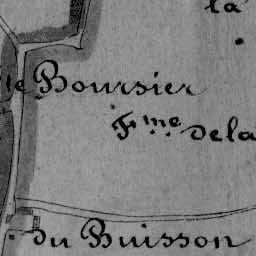 la
le Boursier
Fme de la
du Buisson